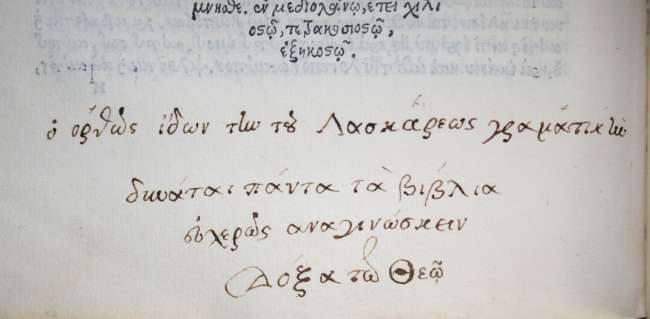 μνηθε. ἐν μεδιολάνῳ, ἔτει χιλι
οσῷ, τετρακοσιοσῷ,
ἑξηκοσῷ.
ὁ ὀρθῶς ἰδων τὴν τοῦ Λασκάρεως γραμάτικὴν
δυνάται πάντα τὰ βιβλια
εὐχερῶς αναγινώσκειν
Δόξα τῶ Θεῷ